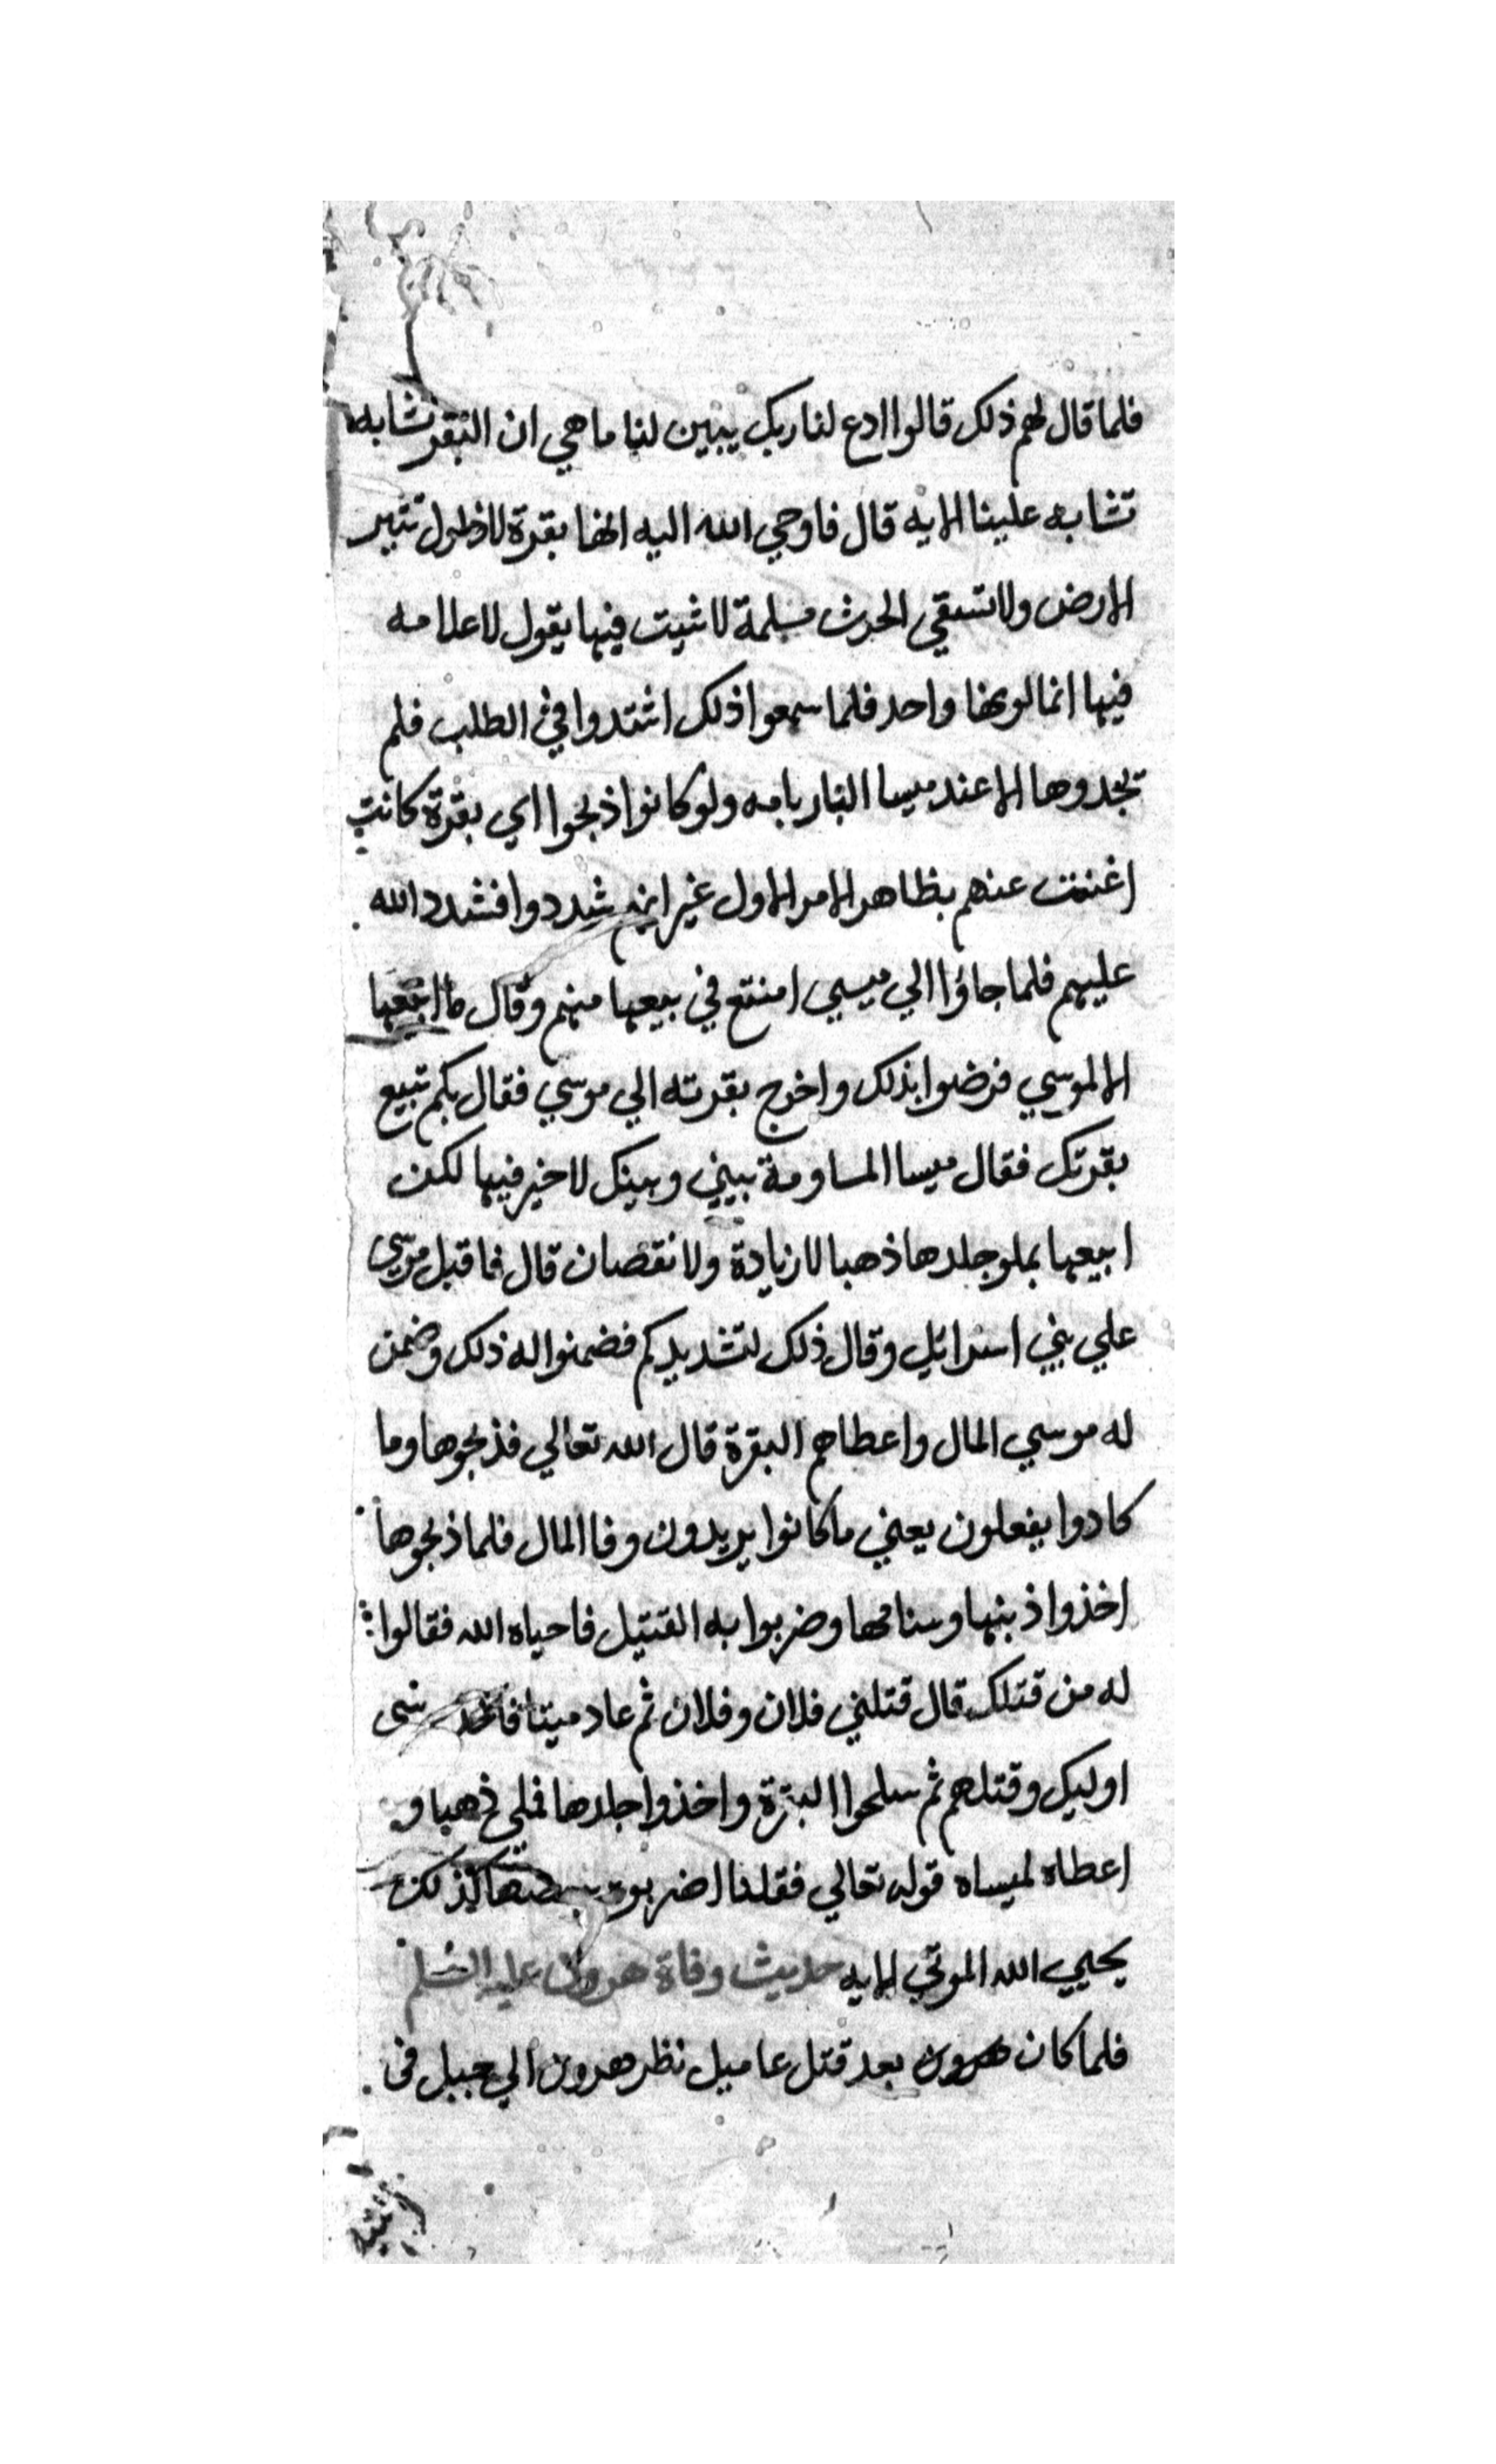 فلما قال لهم ذلك قالوا ادع لنا ربك يبين لنا ما هي ان البقر تشابه
تشابه علينا الايه قال فاوحي الله اليه انها بقرة لا ذلول تثير
الارض ولا تسقي الحرث مسلمة لا شيت فيها يقول لا علامه
فيها انما لونها واحد فلما سمعوا ذلك اشتدوا في الطلب فلم
يجدوها الا عند ميسا البار بامه ولو كانوا ذبحوا اي بقرة كانت
اغنت عنهم بظاهر الامر الاول غير انهم شددوا فشدد الله
عليهم فلما جاؤا الي ميسي امنتع في بيعها منهم وقال ما ابيعها
الا لموسي فرضوا بذلك واخرج بقرته الي موسي فقال بكم تبيع
بقرتك فقال ميسا المساومة بيني وبينك لا خير فيها لكن
ابيعها بملو جلدها ذهبا لا زيادة ولا نقصان قال فاقبل موسى
علي بني اسرائيل وقال ذلك لتشديدكم فضمنوا له ذلك وضمن
له موسي المال واعطاهم البقرة قال الله تعالي فذبحوها وما
كادوا يفعلون يعني ما كانوا يريدون وفا المال فلما ذبحوها
اخذوا ذبنها وسنامها وضربوا به القتيل فاحياه الله فقالوا
له من قتلك قال قتلني فلان وفلان ثم عاد ميتا فاخذ
اوليك وقتلهم ثم سلحوا البقرة واخذوا جلدها فملي ذهبا و
اعطاه لميساه قوله تعالي فقلنا اضربوه ببعضها كذلك
يحيي الله الموتي الايه حديث وفاة هرون عليه السلم
فلما كان هرون بعد قتل عاميل نظر هرون الي جبل في